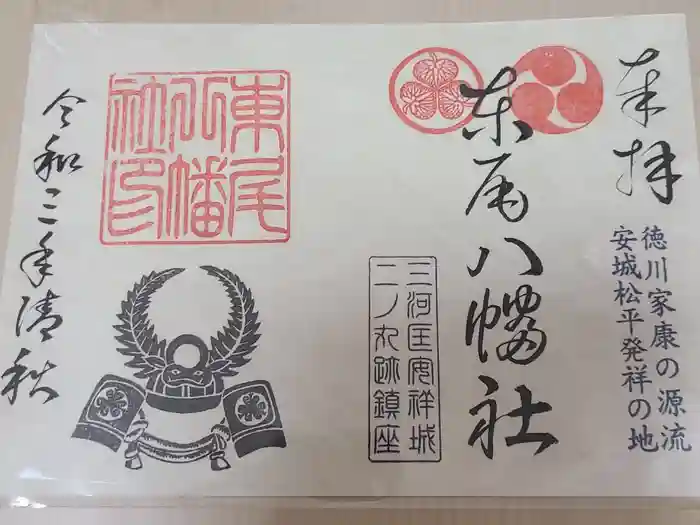 奉拝
徳川家康の源流
安城松平発祥の地
東尾八幡社
三河国安祥城
二ノ丸跡鎮座
東尾
八幡
社印
令和三年清秋